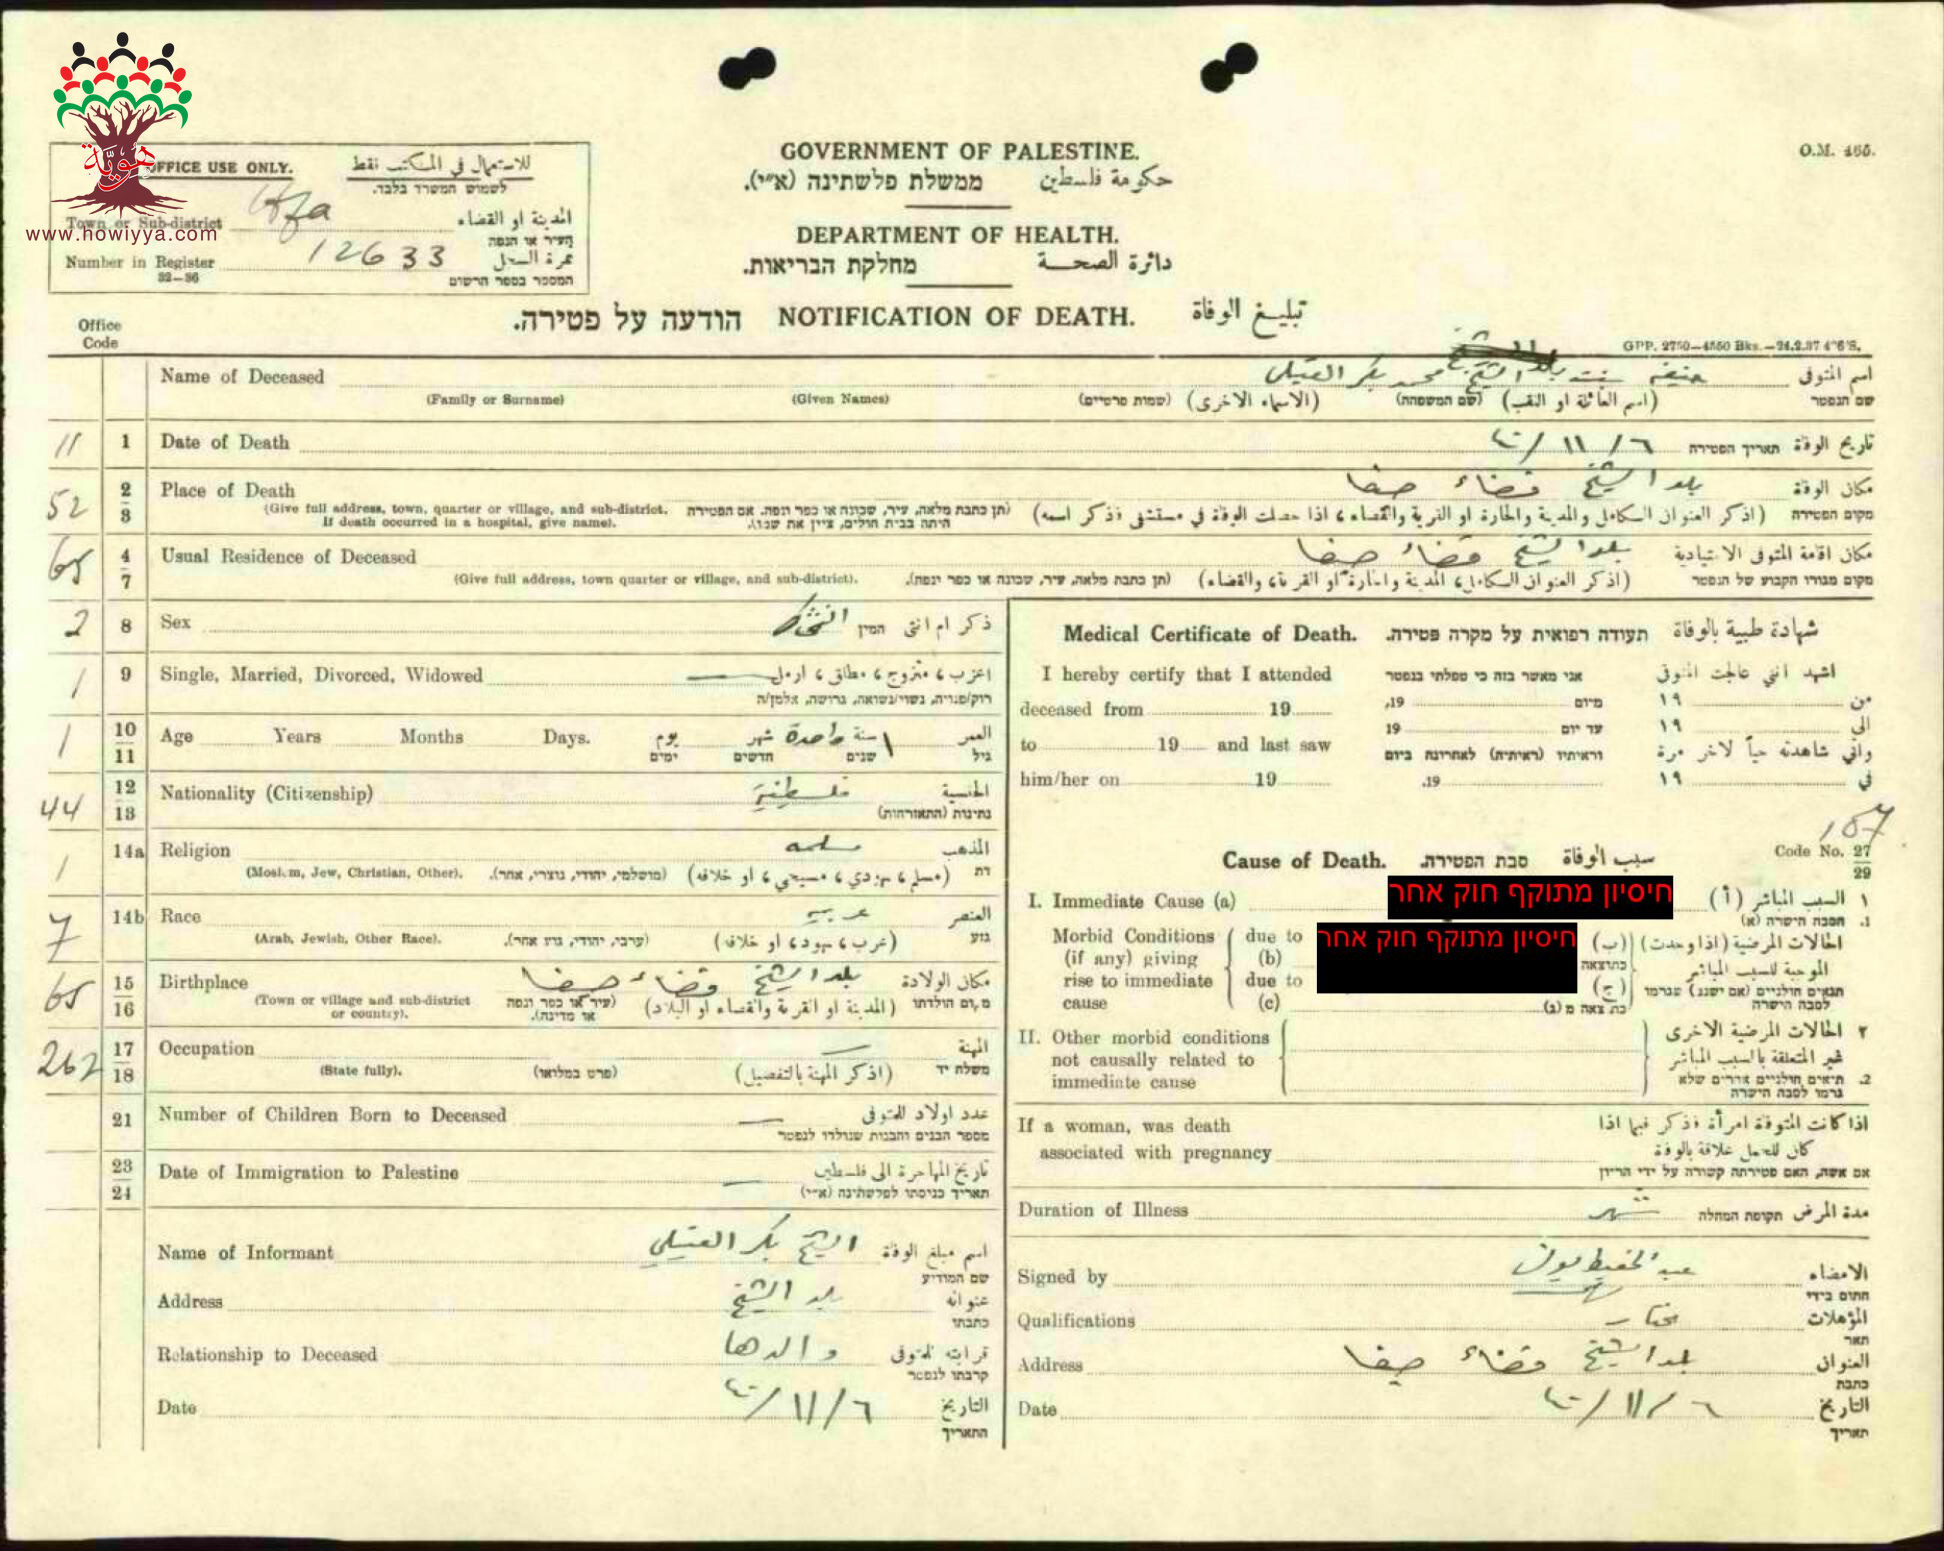 هوية
www.howiyya.com
OFFICE USE ONLY. للاستعمال في المكتب نقط
לשמוש המשרד בלבד.
Town or Sub-district المدينة او القضاء
העיר או הנפה
Number in Register 12633 نمرة السجل
32—36 המספר בספר הרשום
GOVERNMENT OF PALESTINE.
ממשלת פלשתינה (א״י). حكومة فلسطين
DEPARTMENT OF HEALTH.
מחלקת הבריאות. دائرة الصحة
O.M. 455.
הודעה על פטירה. NOTIFICATION OF DEATH. تبليغ الوفاة
Office
Code
GPP. 2750—4550 Bks.—24.2.37 4°6'S.
Name of Deceased بنت محمد بكر اسم المتوفى
(Family or Surname) (Given Names) (שמות פרטיים) (الاسماء الاخرى) (שם המשפחה) (اسم العائلة او اللقب) שם הנפטר
11 1 Date of Death ٦/١١/٤٠ תאריך הפטירה تاريخ الوفاة
52 2 Place of Death بلد الشيخ قضاء حيفا مكان الوفاة
3 (Give full address, town, quarter or village, and sub-district. (תן כתבת מלאה, עיר, שכונה או כפר ונפה. אם הפטירה (اذكر العنوان الكامل والمدينة والحارة او القرية والقضاء، اذا حصلت الوفة في مستشفى فذكر اسمه) מקום הפטירה
If death occurred in a hospital, give name). היתה בבית חולים, ציין את שמו).
65 4 Usual Residence of Deceased بلد الشيخ قضاء حيفا مكان اقامة المتوفى الاعتيادية
7 (Give full address, town quarter or village, and sub-district). (תן כתבת מלאה, עיר, שכונה או כפר ונפה). (اذكر العنوان الكامل، المدينة والحارة او القرية، والقضاء) מקום מגורו הקבוע של הנפטר
2 8 Sex המין ذكر ام انثى
1 9 Single, Married, Divorced, Widowed اعزب، متزوج، مطلق، ارمل
רוק/פנויה, נשוי/נשואה, גרושה, אלמן/ה
1 10 Age Years Months Days. يوم شهر واحدة سنة ١ العمر
11 ימים חדשים שנים גיל
44 12 Nationality (Citizenship) فلسطينية الجنسية
13 נתינות (התאזרחות)
1 14a Religion مسلمه المذهب
(Moslem, Jew, Christian, Other). (מושלמי, יהודי, נוצרי, אחר). (مسلم، يهودي، مسيحي، او خلافه) דת
7 14b Race عربيه العنصر
(Arab, Jewish, Other Race). (ערבי, יהודי, גזע אחר). (عرب، يهود، او خلافه) גזע
65 15 Birthplace بلد الشيخ قضاء حيفا مكان الولادة
16 (Town or village and sub-district (עיר או כפר ונפה (المدينة او القرية والقضاء او البلاد) מקום הולדתו
or country). או מדינה).
262 17 Occupation المهنة
18 (State fully). (פרט במלואו) (اذكر المهنة بالتفصيل) משלח יד
21 Number of Children Born to Deceased عدد اولاد المتوفى
מספר הבנים והבנות שנולדו לנפטר
23 Date of Immigration to Palestine تاريخ المهاجرة الى فلسطين
24 תאריך כניסתו לפלשתינה (א״י)
Name of Informant الشيخ بكر اسم مبلغ الوفاة
שם המודיע
Address بلد الشيخ عنوانه
כתבתו
Relationship to Deceased والدها قرابته للمتوفى
קרבתו לנפטר
Date ٦/١١/٤٠ التاريخ
התאריך
Medical Certificate of Death. תעודה רפואית על מקרה פטירה. شهادة طبية بالوفاة
I hereby certify that I attended אני מאשר בזה כי טפלתי בנפטר اشهد انني عالجت المتوفى
deceased from 19 מיום 19, من ١٩
to 19 and last saw עד יום 19 الى ١٩
וראיתיו (ראיתיה) לאחרונה ביום واني شاهدته حياً لآخر مرة
him/her on 19 19. في ١٩
167
Cause of Death. סבת הפטירה. سبب الوفاة Code No. 27
29
I. Immediate Cause (a) חיסיון מתוקף חוק אחר السبب المباشر (أ) ١
הסבה הישרה (א) 1.
Morbid Conditions due to חיסיון מתוקף חוק אחר (ب) الحالات المرضية (اذا وحدت)
(if any) giving (b) כתוצאה الموجبة للسبب المباشر
rise to immediate due to (ج) תנאים חולניים (אם ישנם) שגרמו
cause (c) כתוצאה מ (ג) לסבה הישרה
II. Other morbid conditions ٢ الحالات المرضية الاخرى
not causally related to غير المتعلقة بالسبب المباشر
immediate cause 2. תנאים חולניים אחרים שלא
גרמו לסבה הישרה
If a woman, was death اذا كانت المتوفاة امرأة فذكر فيما اذا
associated with pregnancy كان للحمل علاقة بالوفة
אם אשה, האם פטירתה קשורה על ידי הריון
Duration of Illness תקופת המחלה مدة المرض
Signed by الامضاء
חתום בידי
Qualifications مختار المؤهلات
תאר
Address بلد الشيخ قضاء حيفا العنوان
כתבת
Date ٦/١١/٤٠ التاريخ
תאריך